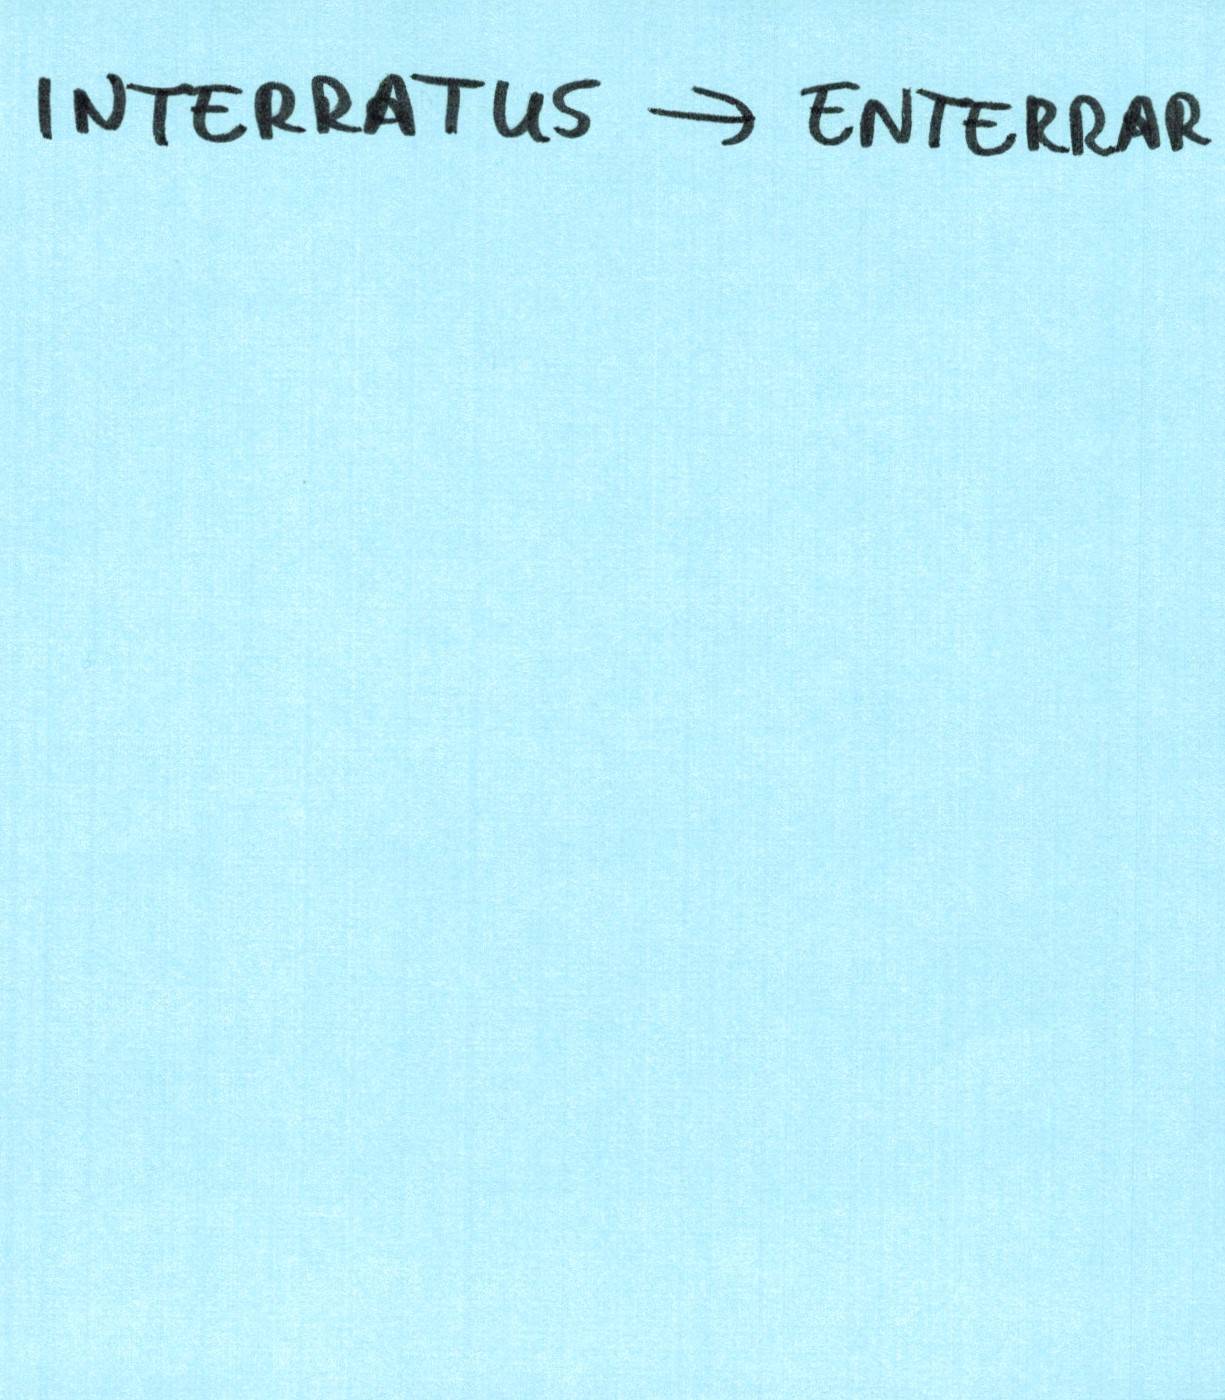 INTERRATUS → ENTERRAR